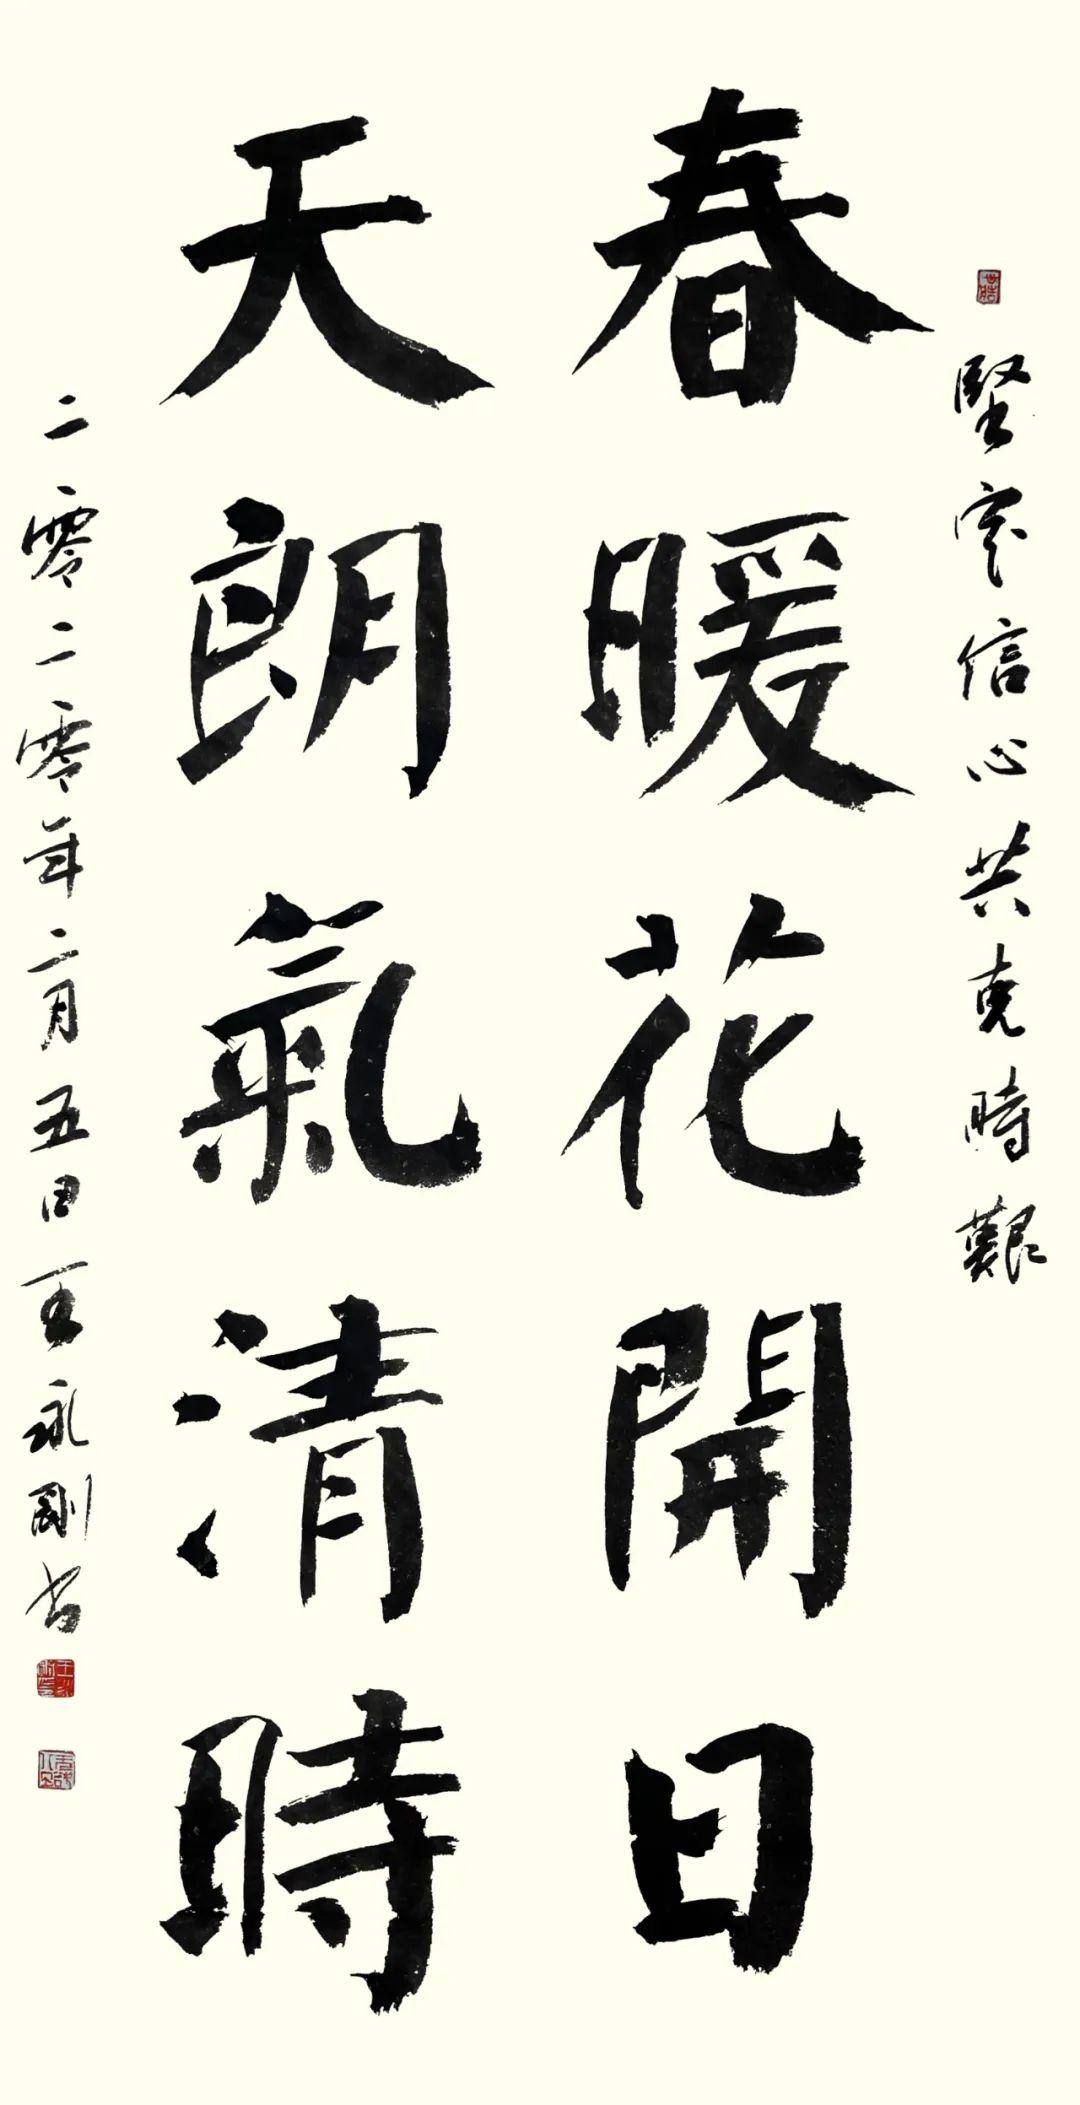 堅定信心共克時艱
春暖花開日
天朗氣清時
二零二零年二月五日王永剛書